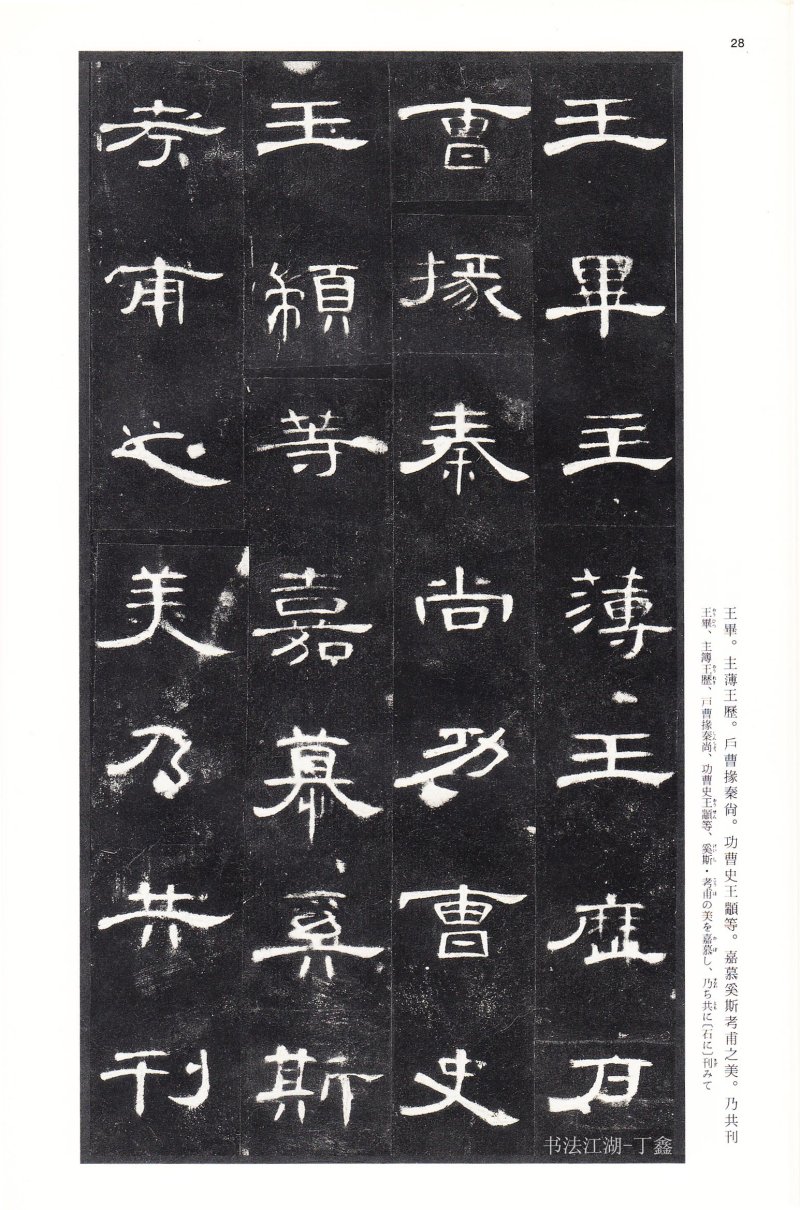 28
王畢主薄王歷戶
曹掾秦尚功曹史
王顓等嘉慕奚斯
考甫之美乃共刊
王畢。主薄王歷。戶曹掾秦尙。功曹史王顓等。嘉慕奚斯考甫之美。乃共刊
王畢、主簿王歷、戶曹掾秦尙、功曹史王顓等、奚斯・考甫の美を嘉慕し、乃ち共に〔石に〕刊みて
书法江湖-丁鑫